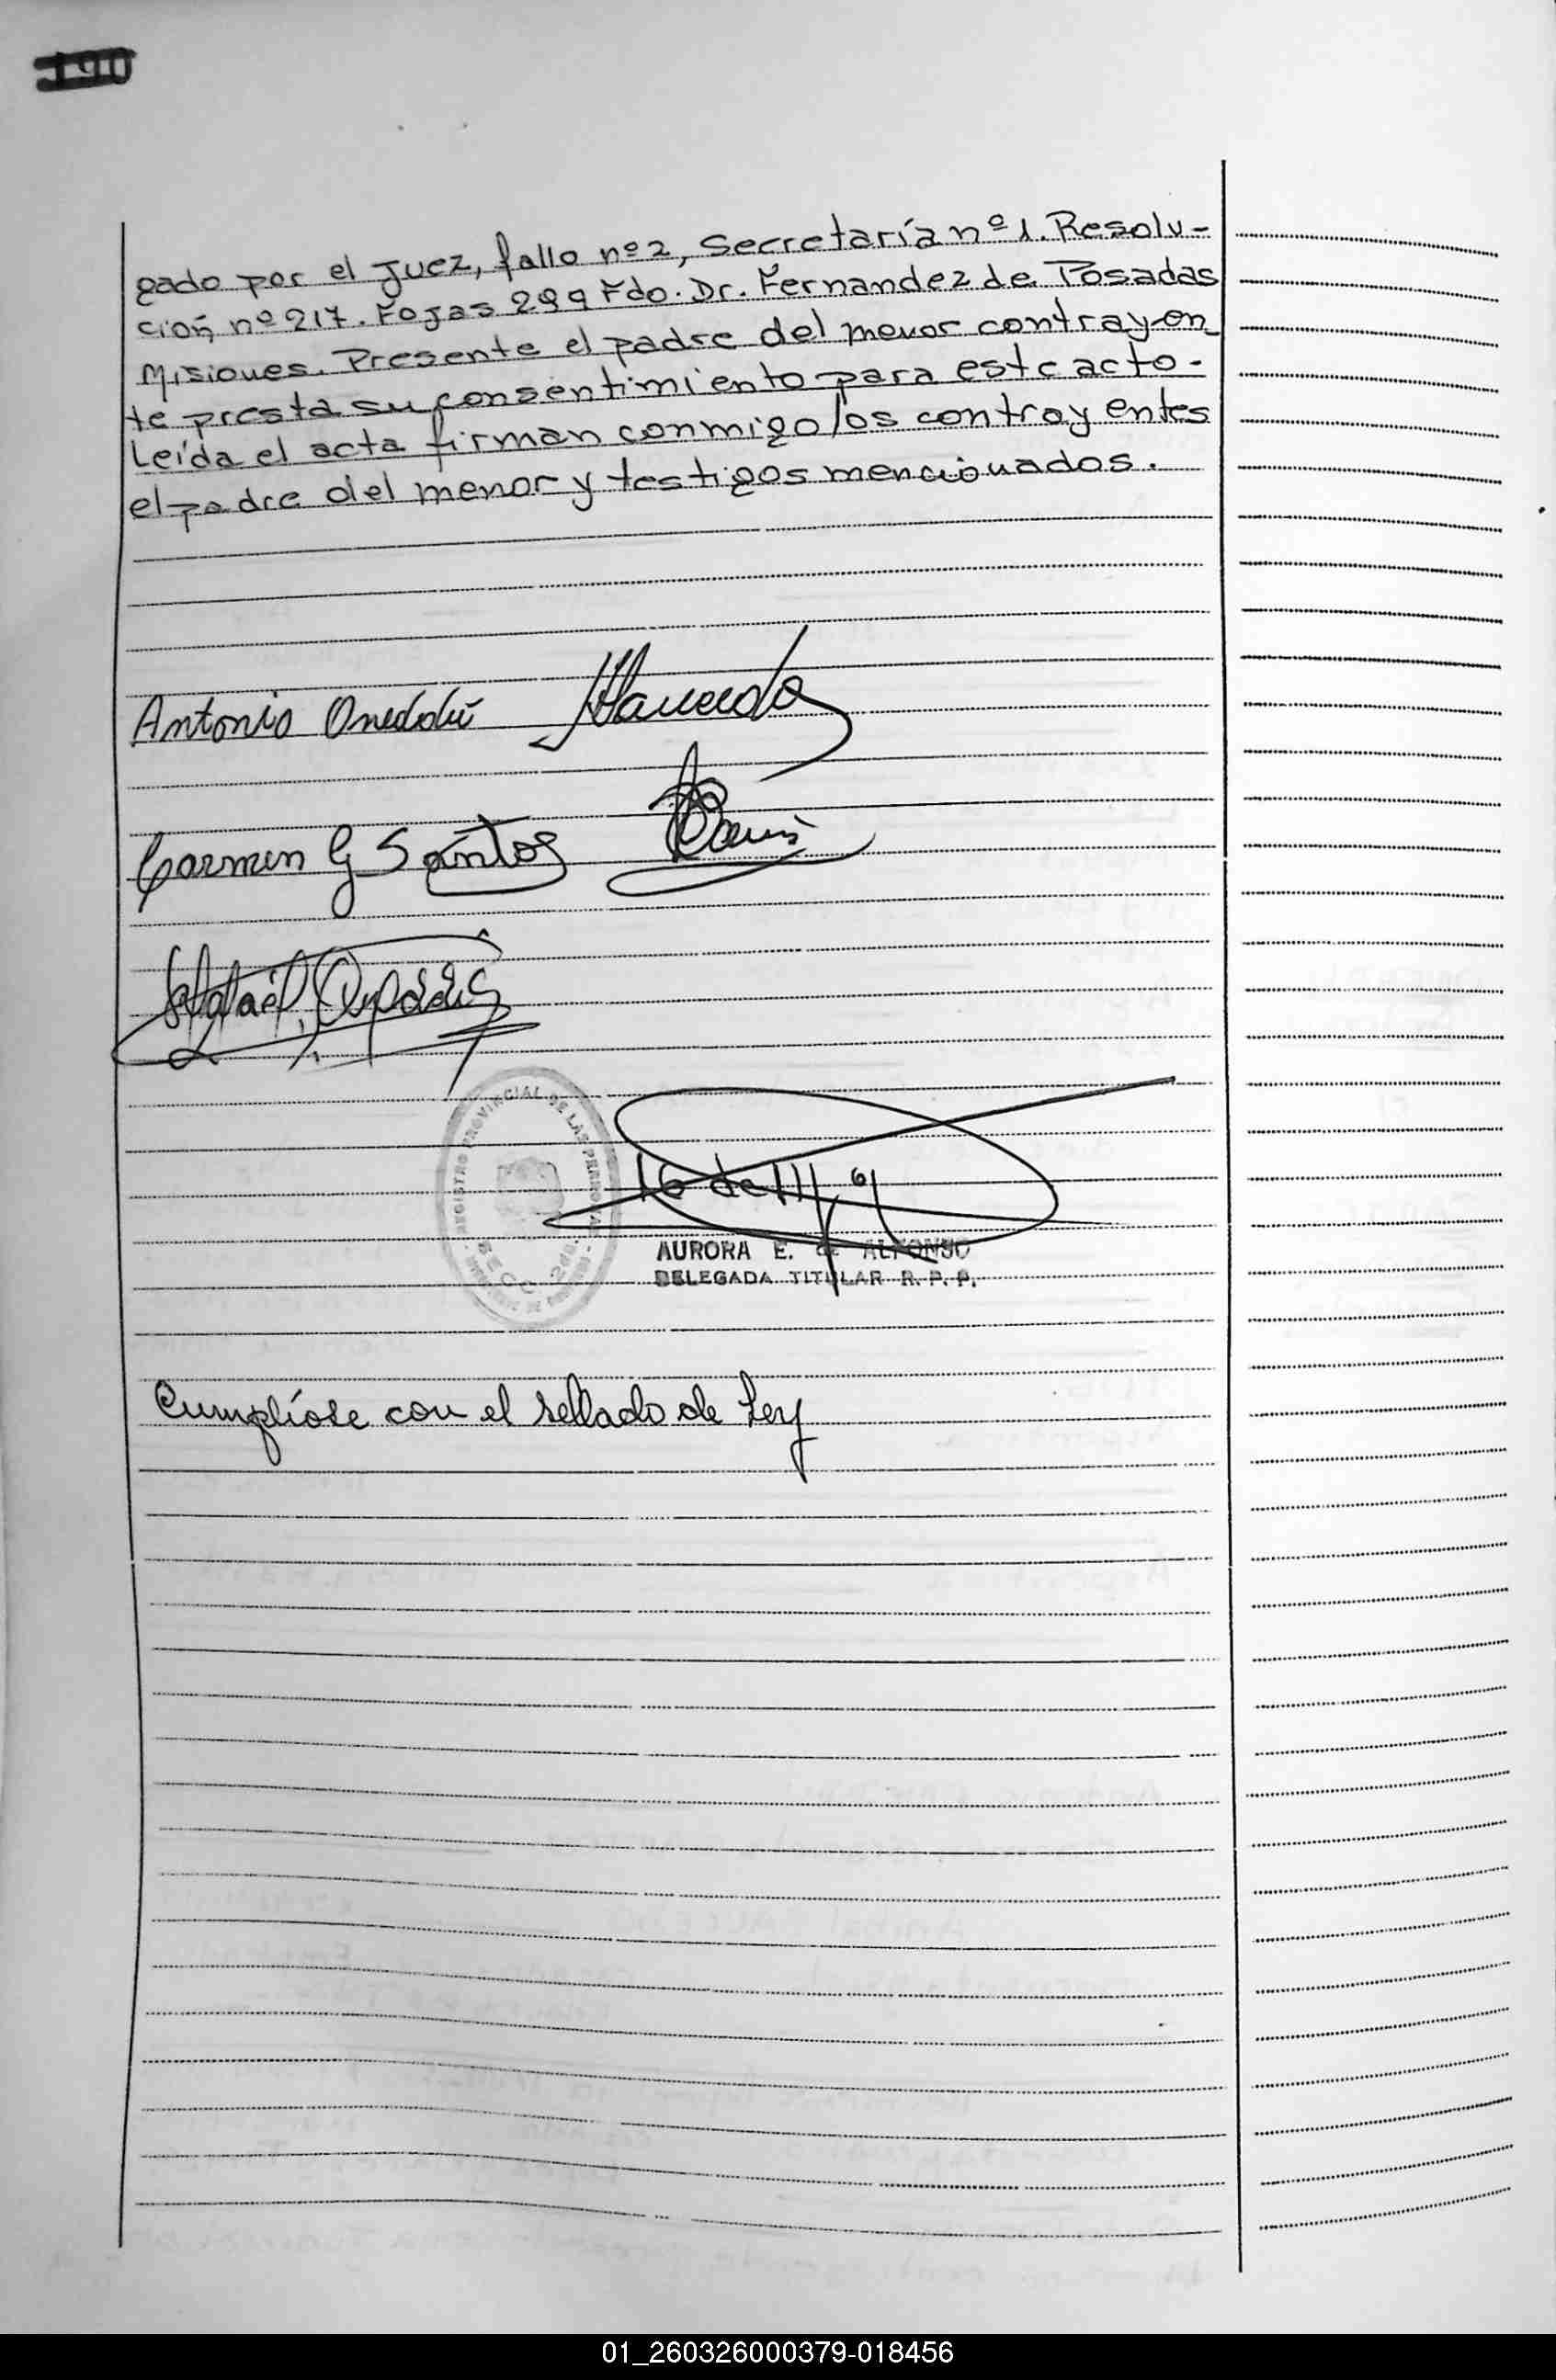 190
gado por el Juez, fallo nº 2, Secretaría nº 1. Resolu-
ción nº 217. Fojas 299 Fdo. Dr. Fernandez de Posadas
Misiones. Presente el padre del menor contrayen
te presta su consentimiento para este acto.
Leída el acta firman conmigo los contrayentes
el padre del menor y testigos mencionados.
Antonio Oneddú
Carmen G Santos
REGISTRO PROVINCIAL DE LAS PERSONAS
SECC. 2da.
AURORA E. de ALFONSO
DELEGADA TITULAR R. P. P.
Cumplióse con el sellado de Ley
01_260326000379-018456